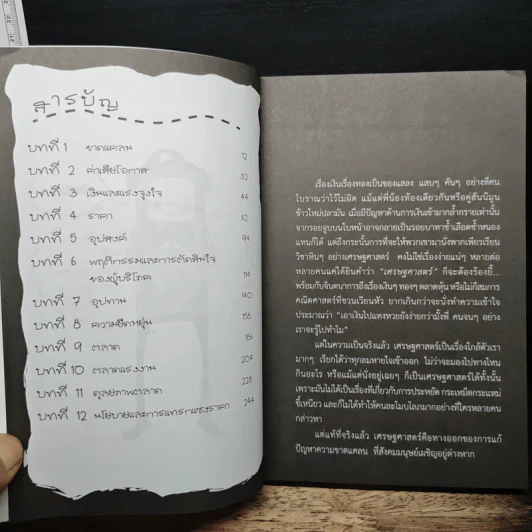 สารบัญ
บทที่ 1 ขาดแคลน 12
บทที่ 2 ค่าเสียโอกาส 32
บทที่ 3 เงินและแรงจูงใจ 44
บทที่ 4 ราคา 62
บทที่ 5 อุปสงค์ 94
บทที่ 6 พฤติกรรมและการตัดสินใจ
ของผู้บริโภค 114
บทที่ 7 อุปทาน 140
บทที่ 8 ความยืดหยุ่น 158
บทที่ 9 ตลาด 186
บทที่ 10 ตลาดแรงงาน 204
บทที่ 11 ดุลยภาพตลาด 226
บทที่ 12 นโยบายและการแทรกแซงราคา 244
เรื่องเงินเรื่องทองเป็นของแสลง แสบๆ คันๆ อย่างที่คน
โบราณว่าไว้ไม่ผิด แม้แต่พี่น้องท้องเดียวกันหรือคู่ฮันนีมูน
ข้าวใหม่ปลามัน เมื่อมีปัญหาด้านการเงินเข้ามากล้ำกรายเท่านั้น
จากรอยจูบบนใบหน้าอาจกลายเป็นรอยบาทาช้ำเลือดช้ำหนอง
แทนก็ได้ แต่ถึงกระนั้นการที่จะให้พวกเขามานั่งพากเพียรเรียน
วิชาหินๆ อย่างเศรษฐศาสตร์ คงไม่ใช่เรื่องง่ายแน่ๆ หลายต่อ
หลายคนแค่ได้ยินคำว่า "เศรษฐศาสตร์" ก็จะต้องร้องยี้...
พร้อมกับจินตนาการถึงเรื่องเงินๆ ทองๆ ตลาดหุ้น หรือไม่ก็สมการ
คณิตศาสตร์ที่ชวนเวียนหัว ยากเกินกว่าจะนั่งทำความเข้าใจ
ประมาณว่า "เอาเงินไปแทงหวยยังง่ายกว่ามั้งพี่ คนจนๆ อย่าง
เราจะรู้ไปทำไม"
แต่ในความเป็นจริงแล้ว เศรษฐศาสตร์เป็นเรื่องใกล้ตัวเรา
มากๆ เรียกได้ว่าทุกลมหายใจเข้าออก ไม่ว่าจะมองไปทางไหน
กินอะไร หรือแม้แต่นั่งอยู่เฉยๆ ก็เป็นเศรษฐศาสตร์ได้ทั้งนั้น
เพราะมันไม่ได้เป็นเรื่องที่เกี่ยวกับการประหยัด กระเหม็ดกระแหม่
ขี้เหนียว และก็ไม่ได้ทำให้คนละโมบโลภมากอย่างที่ใครหลายคน
กล่าวหา
แต่แท้ที่จริงแล้ว เศรษฐศาสตร์คือทางออกของการแก้
ปัญหาความขาดแคลน ที่สังคมมนุษย์เผชิญอยู่ต่างหาก